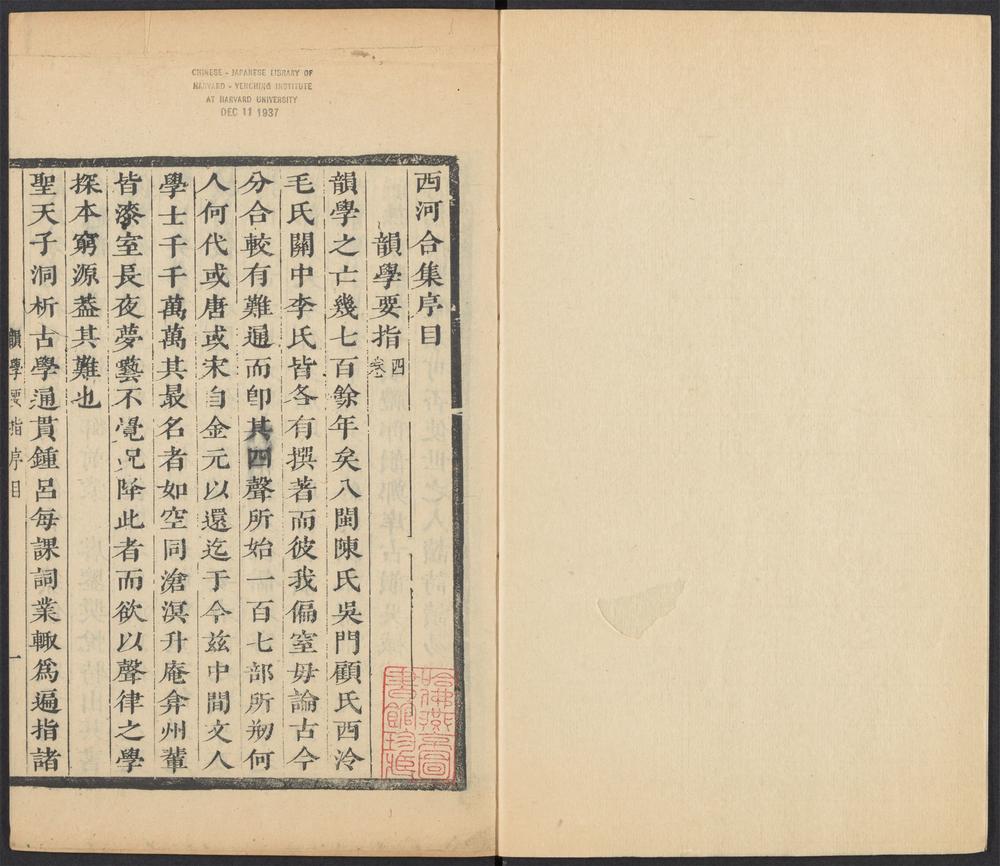 CHINESE - JAPANESE LIBRARY OF
HARVARD - YENCHING INSTITUTE
AT HARVARD UNIVERSITY
DEC 11 1937
西河合集序目
韻學要指四卷
韻學之亡幾七百餘年矣八閩陳氏吳門顧氏西泠
毛氏關中李氏皆各有撰著而彼我偏窒毋論古今
分合較有難通而卽其四聲所始一百七部所剏何
人何代或唐或宋自金元以還迄于今茲中間文人
學士千千萬萬其最名者如空同滄溟升庵弇州輩
皆漆室長夜夢藝不覺況降此者而欲以聲律之學
探本窮源葢其難也
聖天子洞析古學通貫鍾呂每課詞業輙爲遍指諸
韻學要指序目
一
哈佛燕京圖書館珍藏